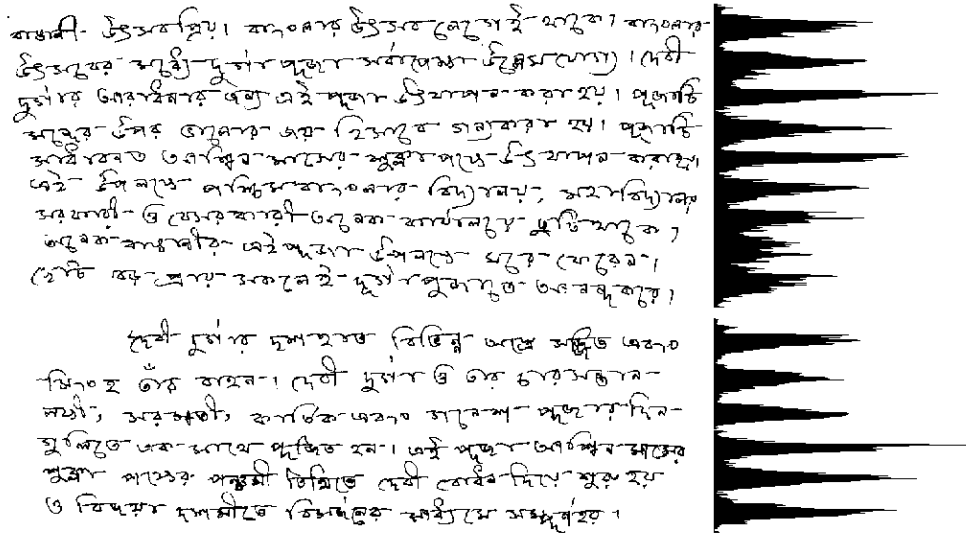 বাঙালী উৎসবপ্রিয়। বাংলার উৎসব লেগেই থাকে। বাংলার
উৎসবের মধ্যে দুর্গা পূজা সর্বাপেক্ষা উল্লেখযোগ্য। দেবী
দুর্গার আরাধনার জন্য এই পূজা উৎযাপন করা হয়। পূজাটি
মন্দের উপর ভালোর জয় হিসাবে গন্যকরা হয়। পূজাটি
সাধারনত আশ্বিন মাসের শুক্লা পক্ষে উৎযাপন করাহয়।
এই উপলক্ষে পশ্চিমবাংলার বিদ্যালয়, মহাবিদ্যালয়,
সরকারী ও বেসরকারী অনেক কার্যালয়ে ছুটি থাকে,
অনেক বাঙালীর এই পূজা উপলক্ষে ঘরে ফেরেন।
ছোট বড় প্রায় সকলেই দূর্গাপুজাতে আনন্দ করে।
দেবী দুর্গার দশ হাত বিভিন্ন অস্ত্রে সজ্জিত এবং
সিংহ তাঁর বাহন। দেবী দুর্গা ও তার চার সন্তান
লক্ষী, সরস্বতী, কার্তিক এবং গনেশ পূজার দিন
গুলিতে এক সাথে পূজিত হন। এই পূজা আশ্বিন মাসের
শুক্লা পক্ষের পঞ্চমী তিথিতে দেবী বোধন দিয়ে শুরু হয়
ও বিজয়া দশমীতে বিসর্জনের মাধ্যমে সম্পূর্ণ হয়।